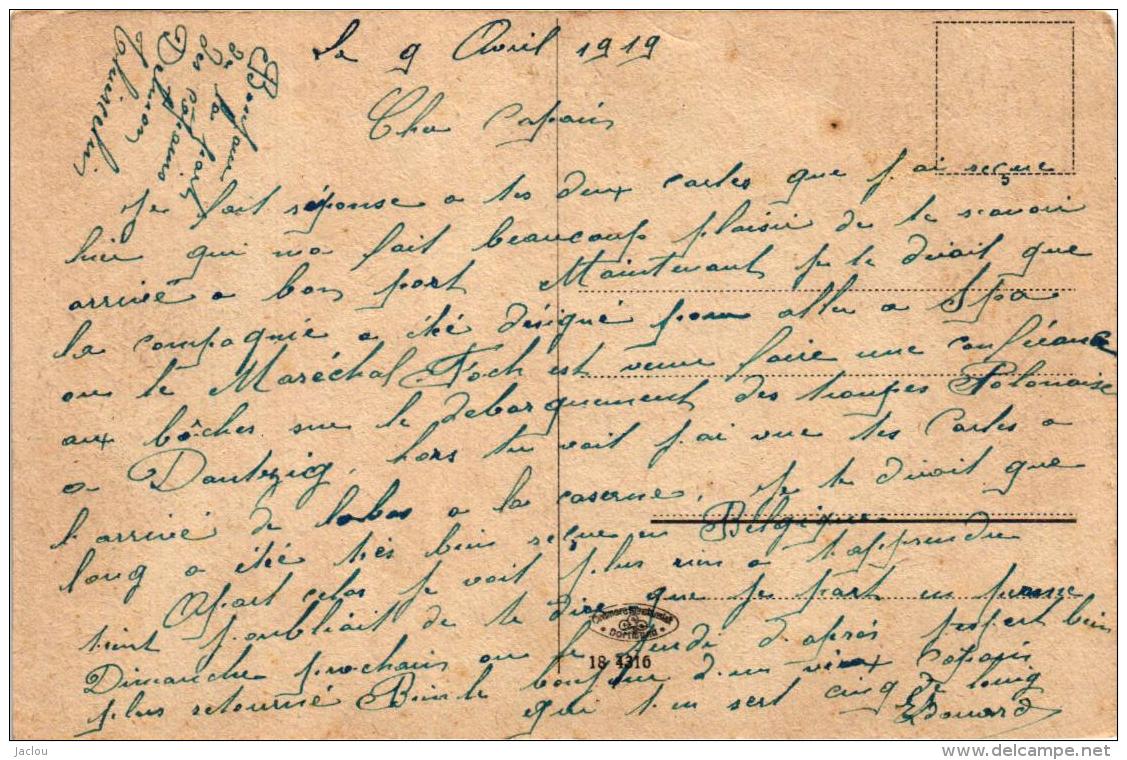 Le 9 Avril 1919
Bonjour
de la part
des copains
Cher copain
Je fait réponse a tes deux cartes que j'ai reçue
hier qui ma fait beaucoup plaisir de te savoir
arrivé a bon port Maintenant je te dirait que
la compagnie a été désigné pour aller a Spa
ou le Maréchal Foch est venue faire une conférance
aux bôches sur le debarquement des troupes Polonaise
a Dantzig, hors tu voit j'ai vue tes Cartes a
l'arrivé de labas a la caserne, je te dirait que
long a été très bien reçue en Belgique
Apart celas je voit plus rien a t'apprendre
tient j'oubliait de te dire que je part en perme
Dimanche prochain ou le jeudi d'après j'espert bien
plus retourné Bien le bonjour d'un vieux Copain
qui t'en sert cinq de loing
Edouard
DORTMUND
18 4316
5
Jaclou
www.delcampe.net